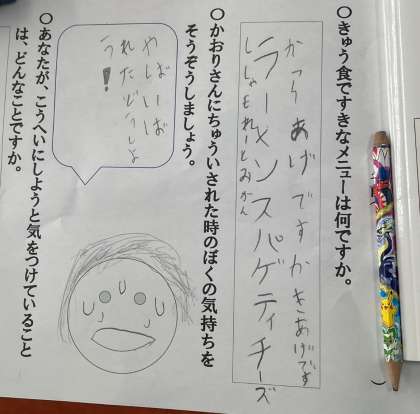 ○きゅう食ですきなメニューは何ですか。
からあげですかきあげです
ラーメンスパゲティチーズ
ししゃもれーとみかん
○かおりさんにちゅういされた時のぼくの気持ちを
そうぞうしましょう。
やばいば
れたどうしよ
う!
○あなたが、こうへいにしようと気をつけていること
は、どんなことですか。